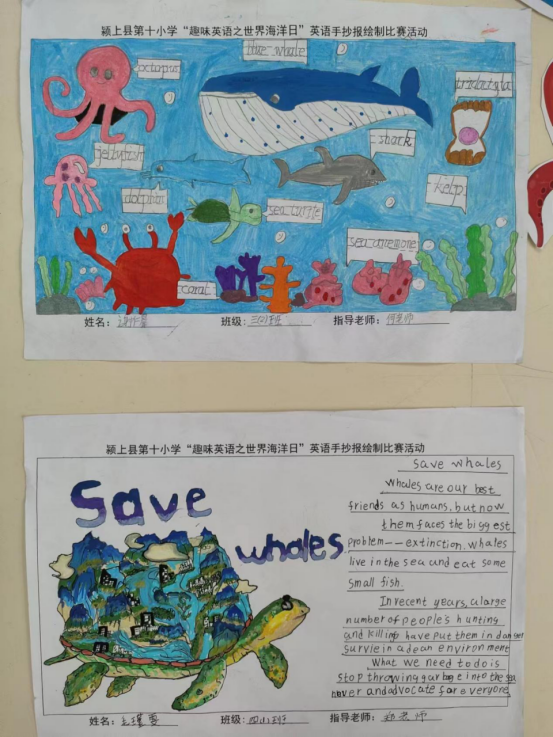 颍上县第十小学“趣味英语之世界海洋日”英语手抄报绘制比赛活动
blue whale
octopus
shark
jellyfish
dolphin
kelp
sea turtle
sea anemone
coral
姓名:
班级: 三(2)班
指导老师: 何老师
颍上县第十小学“趣味英语之世界海洋日”英语手抄报绘制比赛活动
Save
whales
Save whales
Whales are our best
friends as humans. but now
them faces the biggest
problem--extinction. whales
live in the sea and eat some
small fish.
In recent years, a large
number of people's hunting
and killing have put them in danger
survie in a clean environment
What we need to do is
stop throwing garbage into the sea
never and advocate for everyone
姓名:
班级: 四(4)班
指导老师: 郑老师